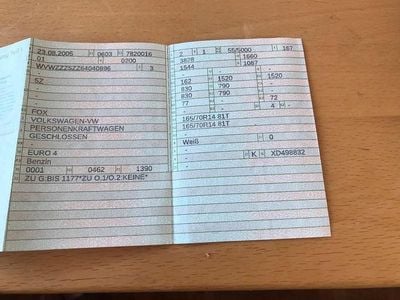 23.08.2005 0603 7820016
01 0200
WVWZZZ5ZZ64040896 3
-
5Z
-
-
FOX
VOLKSWAGEN-VW
PERSONENKRAFTWAGEN
GESCHLOSSEN
-
EURO 4
Benzin
0001 0462 1390
ZU G:BIS 1177*ZU O.1/O.2:KEINE*
2 1 55/5000 187
3828 1660
1544 1087
- - -
162 1520 1520
830 790 -
830 790 -
77 - 72
- 4 -
165/70R14 81T
165/70R14 81T
-
Weiß 0
- K XD498832